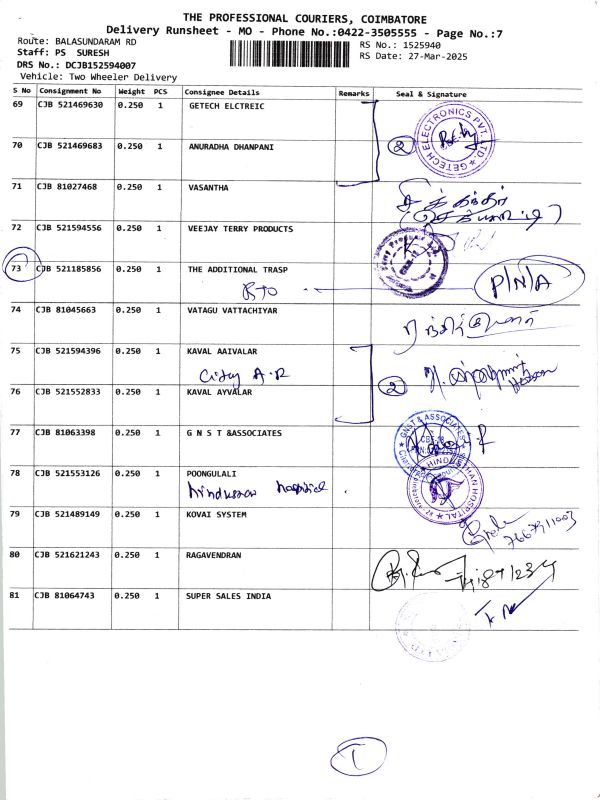 THE PROFESSIONAL COURIERS, COIMBATORE
Delivery Runsheet - MO - Phone No.:0422-3505555 - Page No.:7
Route: BALASUNDARAM RD
RS No.: 1525940
Staff: PS SURESH
RS Date: 27-Mar-2025
DRS No.: DCJB152594007
Vehicle: Two Wheeler Delivery
S No Consignment No Weight PCS Consignee Details Remarks Seal & Signature
69 CJB 521469630 0.250 1 GETECH ELCTREIC
GETECH ELECTRONICS PVT. LTD.
70 CJB 521469683 0.250 1 ANURADHA DHANPANI 2
71 CJB 81027468 0.250 1 VASANTHA
72 CJB 521594556 0.250 1 VEEJAY TERRY PRODUCTS
73 CJB 521185856 0.250 1 THE ADDITIONAL TRASP
RTO P/N/A
74 CJB 81045663 0.250 1 VATAGU VATTACHIYAR
75 CJB 521594396 0.250 1 KAVAL AAIVALAR
City A.R 2
76 CJB 521552833 0.250 1 KAVAL AYVALAR
77 CJB 81063398 0.250 1 G N S T &ASSOCIATES
GNST & ASSOCIATES
78 CJB 521553126 0.250 1 POONGULALI
hindusthan hospital. HINDUSTHAN HOSPITAL
79 CJB 521489149 0.250 1 KOVAI SYSTEM
80 CJB 521621243 0.250 1 RAGAVENDRAN
81 CJB 81064743 0.250 1 SUPER SALES INDIA